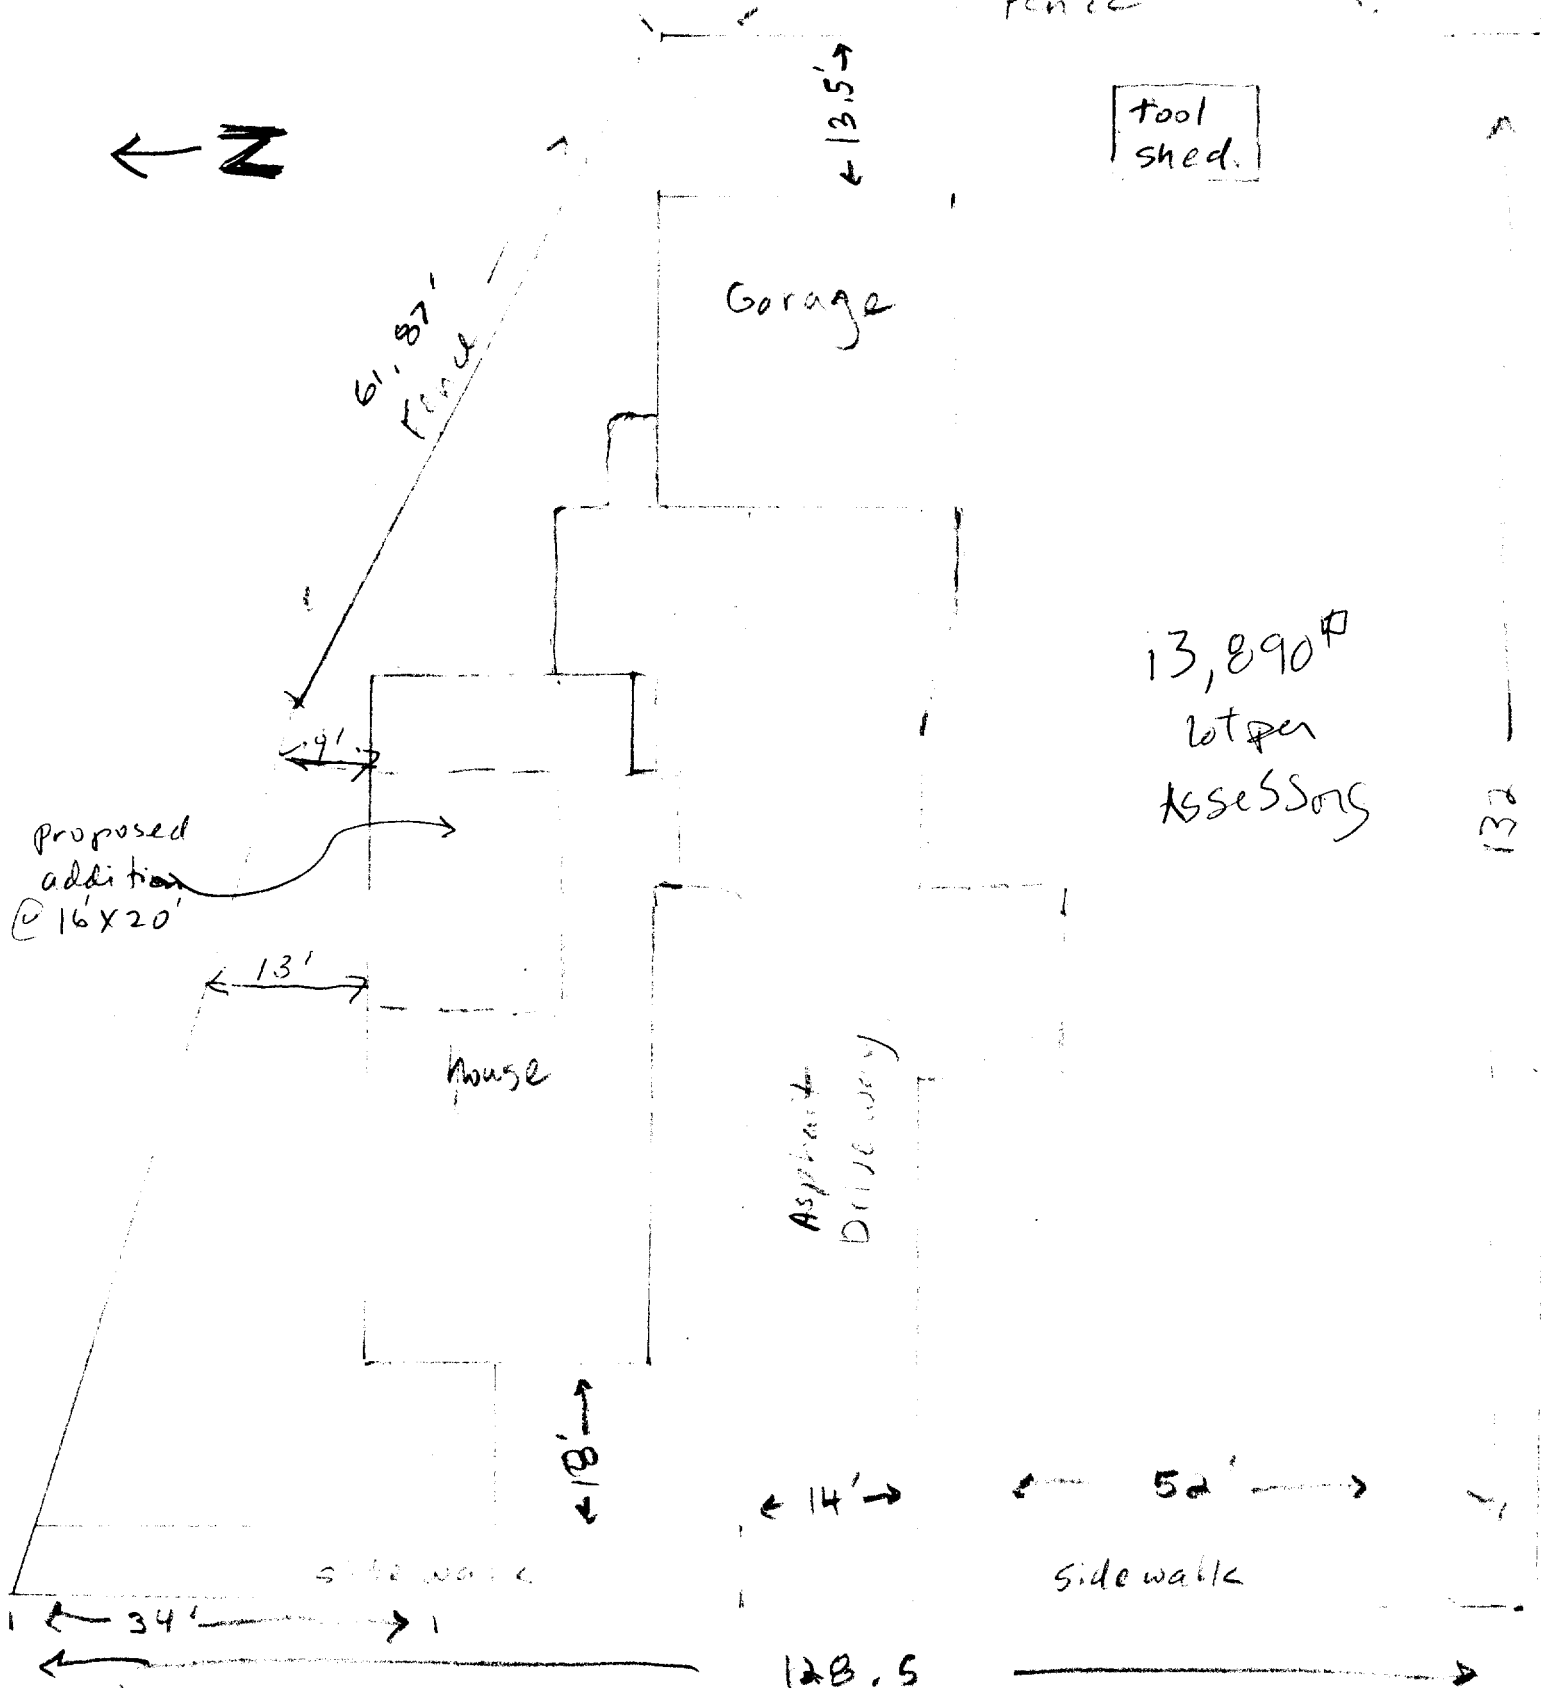 fence
N
13.5'
tool
shed.
Gorage
61.87'
fence
13,890
lot per
Assessors
9'
132
proposed
addition
@ 16'x20'
13'
house
Asphalt
Driveway
18'
14'
52'
sidewalk
sidewalk
34'
128.5